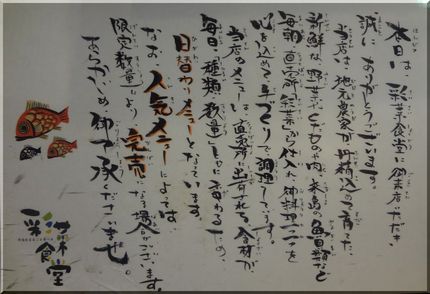 本日は、彩菜食堂に御来店いただき
誠にありがとうございます。
当店は、地元農家が丹精込めて育てた
新鮮な野菜やくだもの
毎朝直売所
心を込めて手づくりで調理しています。
当店のメニューは、直売所に出荷される食材が
毎日、種類・数量ともに変わるため、
日替わりメニューとなっています。
なお、人気メニューによっては
限定数量により完売になる場合がございます。
あらかじめ御了承くださいませ。
彩菜食堂